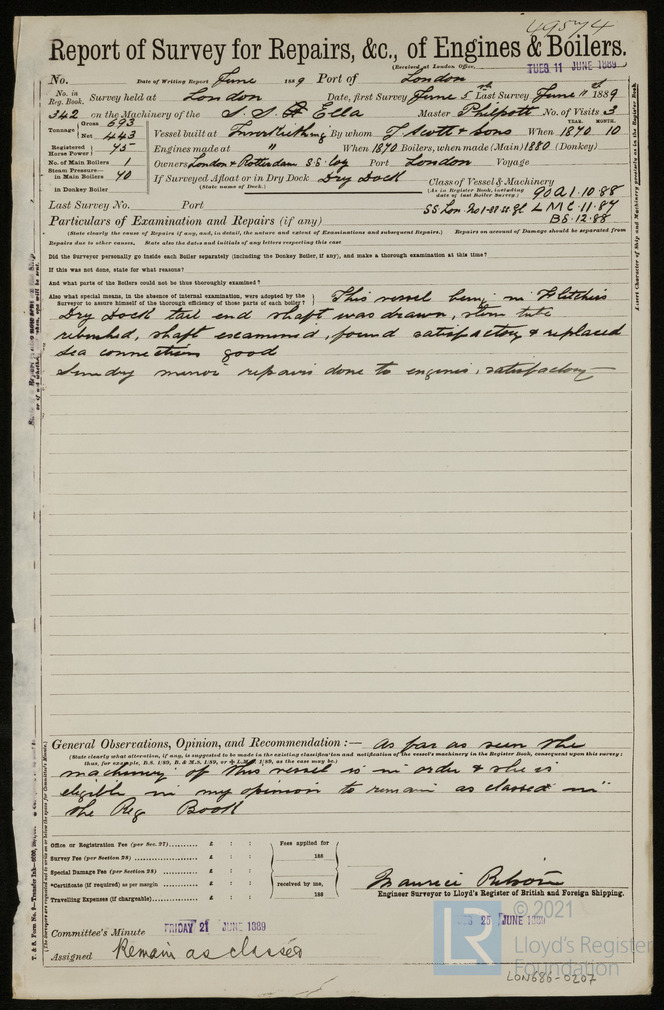 49574
Report of Survey for Repairs, &c., of Engines & Boilers.
(Received at London Office, TUES 11 JUNE 1889
No. Date of Writing Report June 1889 Port of London
No. in Reg. Book. Survey held at London Date, first Survey June 5th Last Survey June 11th 1889
342 on the Machinery of the S. S. Ella Master Philpott No. of Visits 3
Tonnage Gross 693 Net 443
Vessel built at Inverkeithing By whom T Scott & Sons When YEAR. 1870 MONTH. 10
Registered Horse Power 75 Engines made at " When 1870 Boilers, when made (Main) 1880 (Donkey)
No. of Main Boilers 1 Owners London & Rotterdam S.S. Coy Port London Voyage
Steam Pressure— in Main Boilers 70 If Surveyed Afloat or in Dry Dock Dry Dock
(State name of Dock.)
in Donkey Boiler
Class of Vessel & Machinery
(As in Register Book, including date of last Boiler Survey.) 90A1.10.88
Last Survey No. Port SS Lon. No1-88 L M C 11.87
B S. 12.88
Particulars of Examination and Repairs (if any)
(State clearly the cause of Repairs if any, and, in detail, the nature and extent of Examinations and subsequent Repairs.) Repairs on account of Damage should be separated from
Repairs due to other causes. State also the dates and initials of any letters respecting this case
Did the Surveyor personally go inside each Boiler separately (including the Donkey Boiler, if any), and make a thorough examination at this time?
If this was not done, state for what reasons?
And what parts of the Boilers could not be thus thoroughly examined?
Also what special means, in the absence of internal examination, were adopted by the Surveyor to assure himself of the thorough efficiency of those parts of each boiler?
This vessel being in Fletcher's
Dry Dock tail end shaft was drawn, stern tube
rebushed, shaft examined, found satisfactory & replaced
Sea connections good
Sundry minor repairs done to engines, satisfactory
General Observations, Opinion, and Recommendation :— As far as seen the
(State clearly what alteration, if any, is suggested to be made in the existing classification and notification of the vessel's machinery in the Register Book, consequent upon this survey;
thus, for example, B.S. 1/89, B. & M.S. 1/89, or L.M.C. 1/89, as the case may be.)
machinery of this vessel is in order & she is
eligible in my opinion to remain as classed in
the Reg Book
Office or Registration Fee (per Sec. 27) £ : :
Survey Fee (per Section 28) £ : :
Special Damage Fee (per Section 28) £ : :
*Certificate (if required) as per margin £ : :
Travelling Expenses (if chargeable) £ : :
Fees applied for
188
received by me,
188
Maurice
Engineer Surveyor to Lloyd's Register of British and Foreign Shipping.
Committee's Minute FRIDAY 21 JUNE 1889
25 JUNE 1889
Assigned Remain as classed
© 2021
LR
Lloyd's Register
Foundation
LON686-0207
Insert Character of Ship and Machinery precisely as in the Register Book.